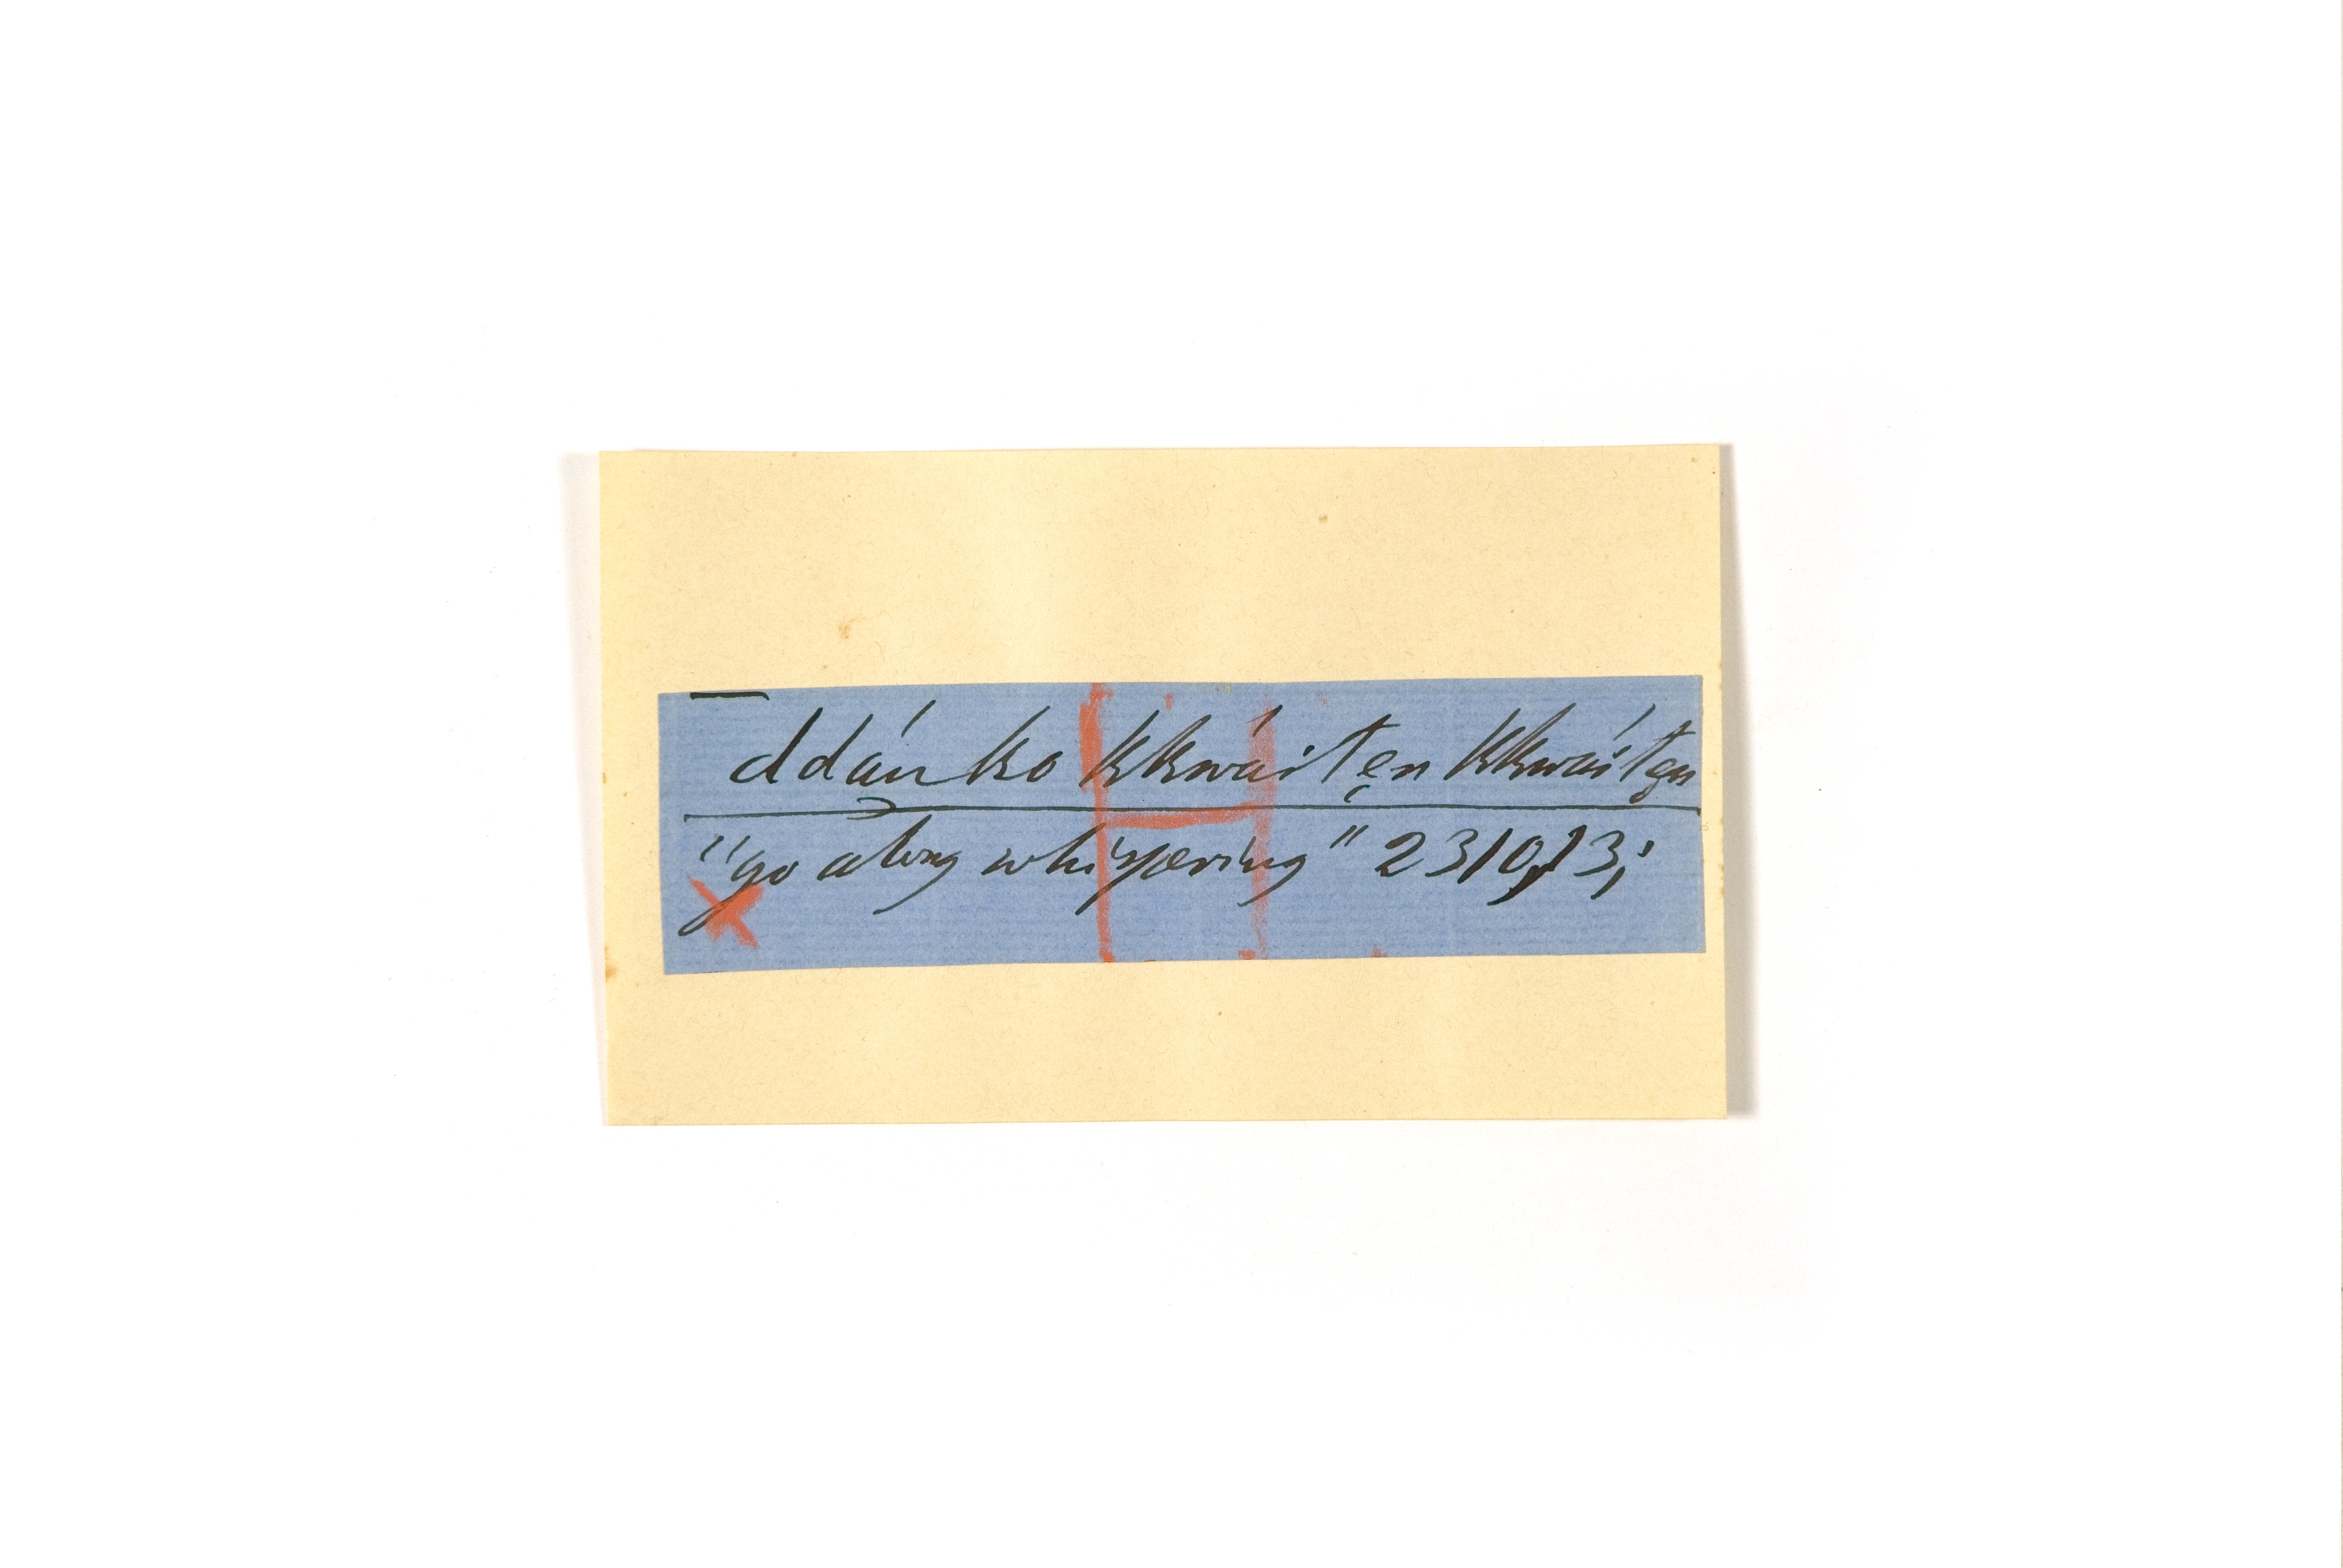 ddán ko kkwáiten kkwáiten
"go along whispering" 2310,13;